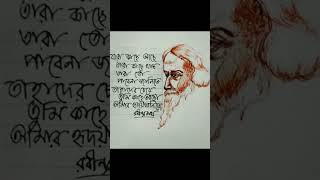 যারা কাছে আছে
তারা কাছে থাক
তারা তো
পাবে না জানিতে
তাহাদের চেয়ে
তুমি কাছে আছ
আমার হৃদয়খানিতে
রবীন্দ্রনাথ